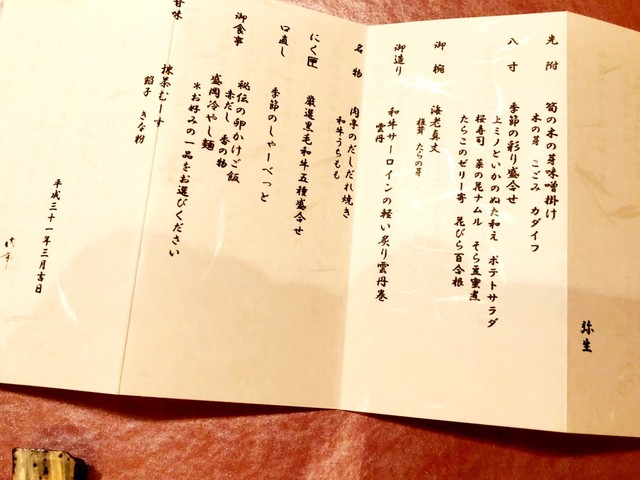 弥生
先附
筍の木の芽味噌掛け
木の芽 こごみ カダイフ
八寸
季節の彩り盛合せ
上ミノといかのぬた和え ポテトサラダ
桜寿司 菜の花ナムル そら豆蜜煮
たらこのゼリー寄 花びら百合根
御椀
海老真丈
椎茸 たらの芽
御造り
和牛サーロインの軽い炙り雲丹巻
雲丹
名物
肉亭のだしだれ焼き
和牛うちもも
にく匠
厳選黒毛和牛五種盛合せ
口直し
季節のしゃーべっと
御食事
秘伝の卵かけご飯
赤だし 香の物
盛岡冷やし麺
*お好みの一品をお選びください
甘味
抹茶むーす
餡子 きな粉
平成三十一年三月吉日